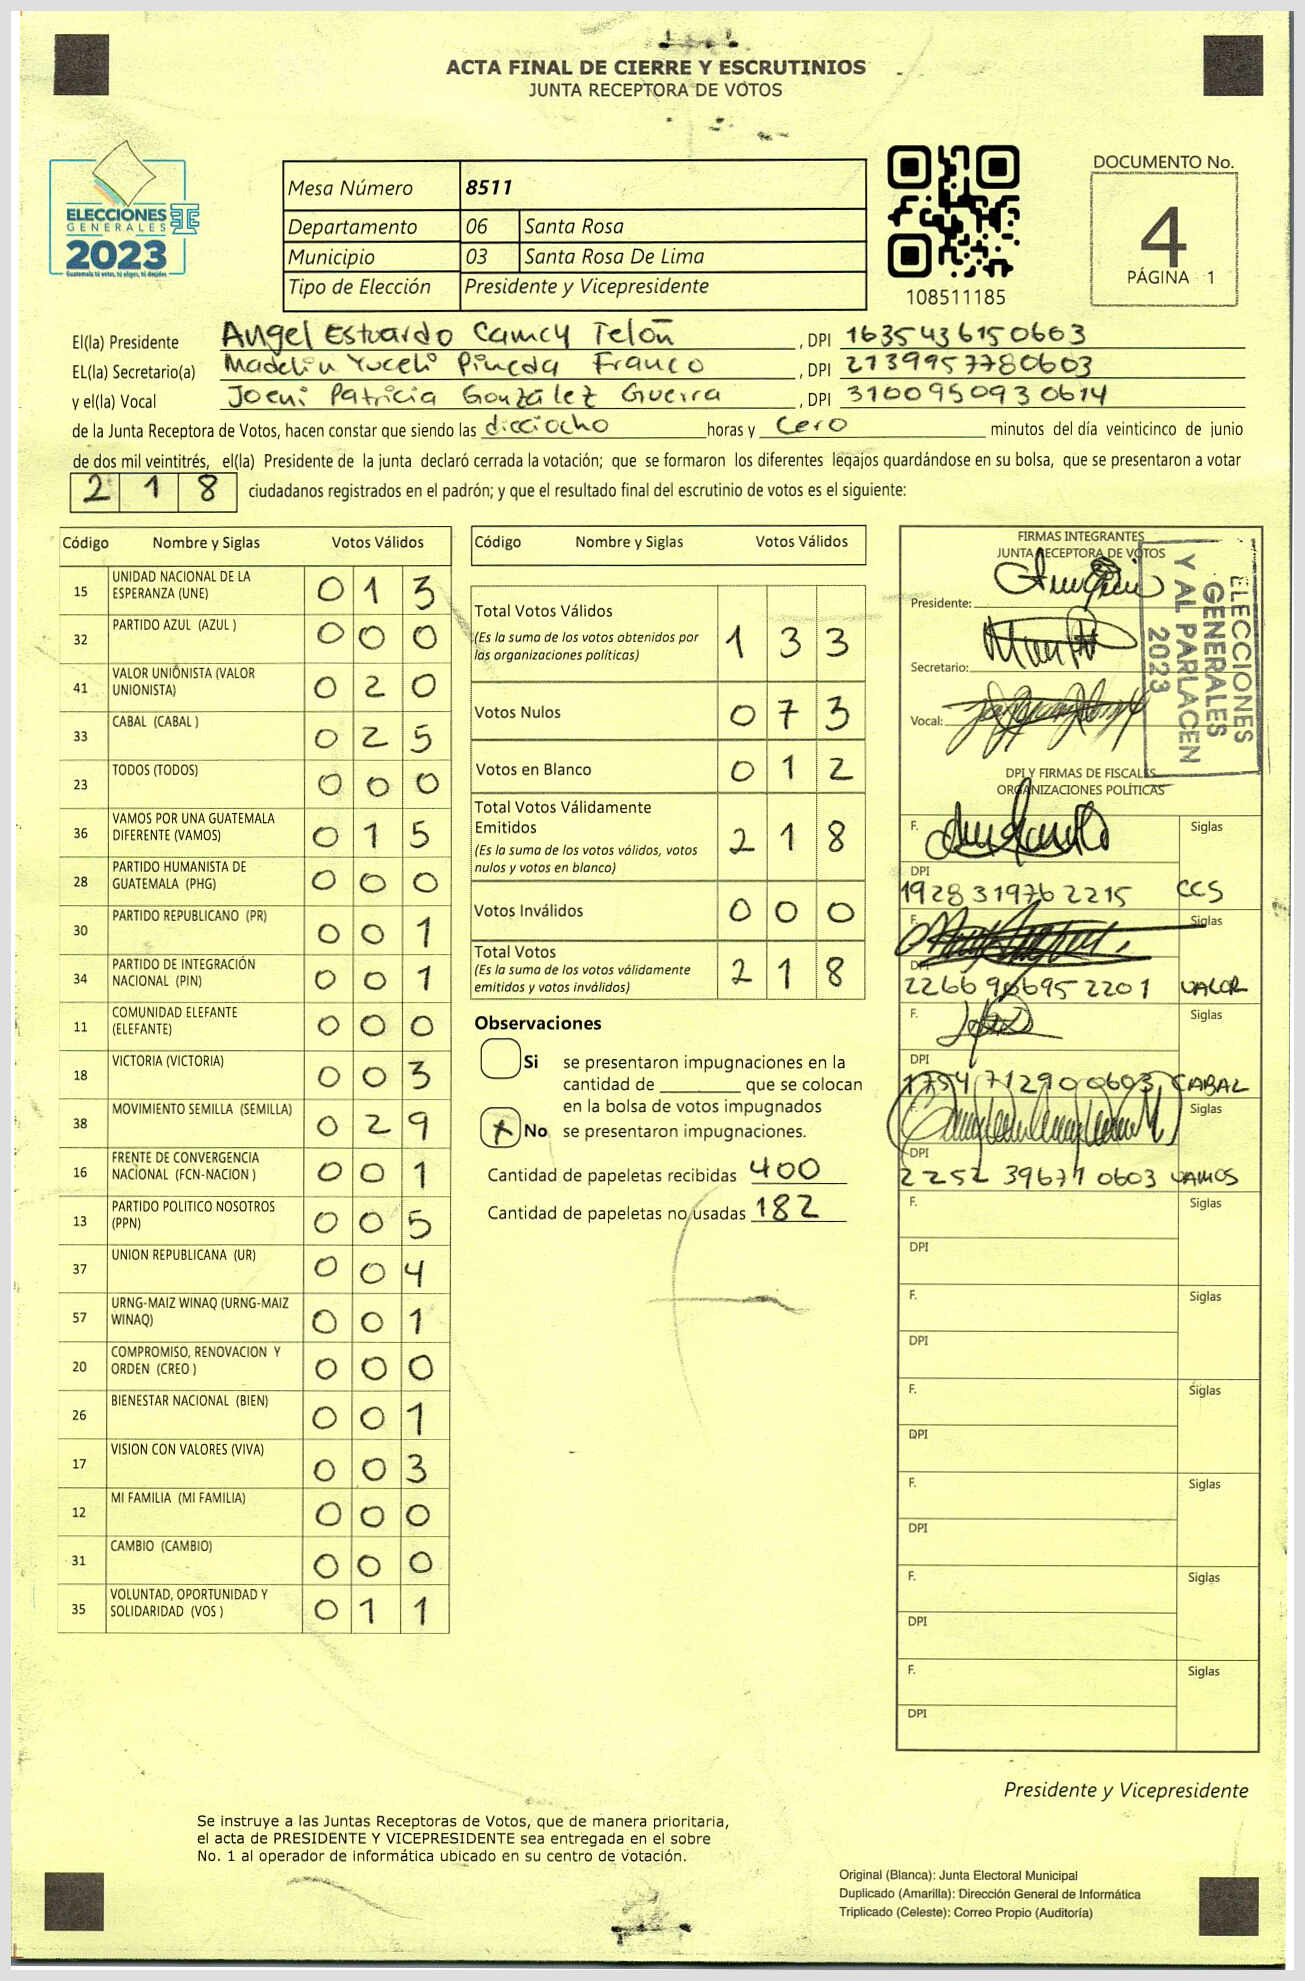 ACTA FINAL DE CIERRE Y ESCRUTINIOS
JUNTA RECEPTORA DE VOTOS
ELECCIONES
GENERALES
2023
Guatemala tú votas, tú eliges, tú decides
Mesa Número 8511
Departamento 06 Santa Rosa
Municipio 03 Santa Rosa De Lima
Tipo de Elección Presidente y Vicepresidente
108511185
DOCUMENTO No.
4
PÁGINA 1
El(la) Presidente Angel Estuardo Camey Telón , DPI 1635436150603
EL(la) Secretario(a) Madelin Yuceli Pineda Franco , DPI 2139957780603
y el(la) Vocal Joeni Patricia González Guerra , DPI 3100950930614
de la Junta Receptora de Votos, hacen constar que siendo las dicciocho horas y Cero minutos del día veinticinco de junio
de dos mil veintitrés, el(la) Presidente de la junta declaró cerrada la votación; que se formaron los diferentes legajos guardándose en su bolsa, que se presentaron a votar
2 1 8 ciudadanos registrados en el padrón; y que el resultado final del escrutinio de votos es el siguiente:
Código Nombre y Siglas Votos Válidos
15 UNIDAD NACIONAL DE LA ESPERANZA (UNE) 0 1 3
32 PARTIDO AZUL (AZUL ) 0 0 0
41 VALOR UNIONISTA (VALOR UNIONISTA) 0 2 0
33 CABAL (CABAL ) 0 2 5
23 TODOS (TODOS) 0 0 0
36 VAMOS POR UNA GUATEMALA DIFERENTE (VAMOS) 0 1 5
28 PARTIDO HUMANISTA DE GUATEMALA (PHG) 0 0 0
30 PARTIDO REPUBLICANO (PR) 0 0 1
34 PARTIDO DE INTEGRACIÓN NACIONAL (PIN) 0 0 1
11 COMUNIDAD ELEFANTE (ELEFANTE) 0 0 0
18 VICTORIA (VICTORIA) 0 0 3
38 MOVIMIENTO SEMILLA (SEMILLA) 0 2 9
16 FRENTE DE CONVERGENCIA NACIONAL (FCN-NACION ) 0 0 1
13 PARTIDO POLITICO NOSOTROS (PPN) 0 0 5
37 UNION REPUBLICANA (UR) 0 0 4
57 URNG-MAIZ WINAQ (URNG-MAIZ WINAQ) 0 0 1
20 COMPROMISO, RENOVACION Y ORDEN (CREO ) 0 0 0
26 BIENESTAR NACIONAL (BIEN) 0 0 1
17 VISION CON VALORES (VIVA) 0 0 3
12 MI FAMILIA (MI FAMILIA) 0 0 0
31 CAMBIO (CAMBIO) 0 0 0
35 VOLUNTAD, OPORTUNIDAD Y SOLIDARIDAD (VOS ) 0 1 1
Código Nombre y Siglas Votos Válidos
Total Votos Válidos 1 3 3
(Es la suma de los votos obtenidos por
las organizaciones políticas)
Votos Nulos 0 7 3
Votos en Blanco 0 1 2
Total Votos Válidamente
Emitidos 2 1 8
(Es la suma de los votos válidos, votos
nulos y votos en blanco)
Votos Inválidos 0 0 0
Total Votos 2 1 8
(Es la suma de los votos válidamente
emitidos y votos inválidos)
Observaciones
Si se presentaron impugnaciones en la
cantidad de ________ que se colocan
en la bolsa de votos impugnados
No se presentaron impugnaciones.
Cantidad de papeletas recibidas 400
Cantidad de papeletas no usadas 182
FIRMAS INTEGRANTES
JUNTA RECEPTORA DE VOTOS
Presidente:
Secretario:
Vocal:
ELECCIONES
GENERALES
Y AL PARLACEN
2023
DPI Y FIRMAS DE FISCALES
ORGANIZACIONES POLÍTICAS
F. Siglas
DPI
1928319762215 CCS
F. Siglas
DPI
2266906952201 VALOR
F. Siglas
DPI
1754712900603 CABAL
F. Siglas
DPI
2252396710603 VAMOS
F. Siglas
DPI
F. Siglas
DPI
F. Siglas
DPI
F. Siglas
DPI
F. Siglas
DPI
F. Siglas
DPI
Presidente y Vicepresidente
Se instruye a las Juntas Receptoras de Votos, que de manera prioritaria,
el acta de PRESIDENTE Y VICEPRESIDENTE sea entregada en el sobre
No. 1 al operador de informática ubicado en su centro de votación.
Original (Blanca): Junta Electoral Municipal
Duplicado (Amarilla): Dirección General de Informática
Triplicado (Celeste): Correo Propio (Auditoría)